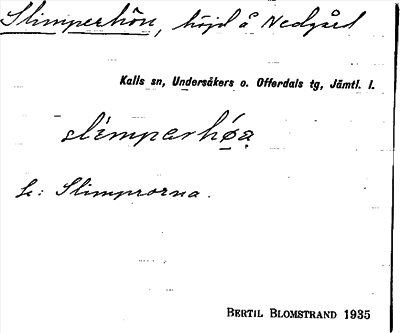 Slimperhön, höjd å Nedgård
Kalls sn, Undersåkers o. Offerdals tg, Jämtl. l.
slimperhøa
Se: Slimprorna.
BERTIL BLOMSTRAND 1935